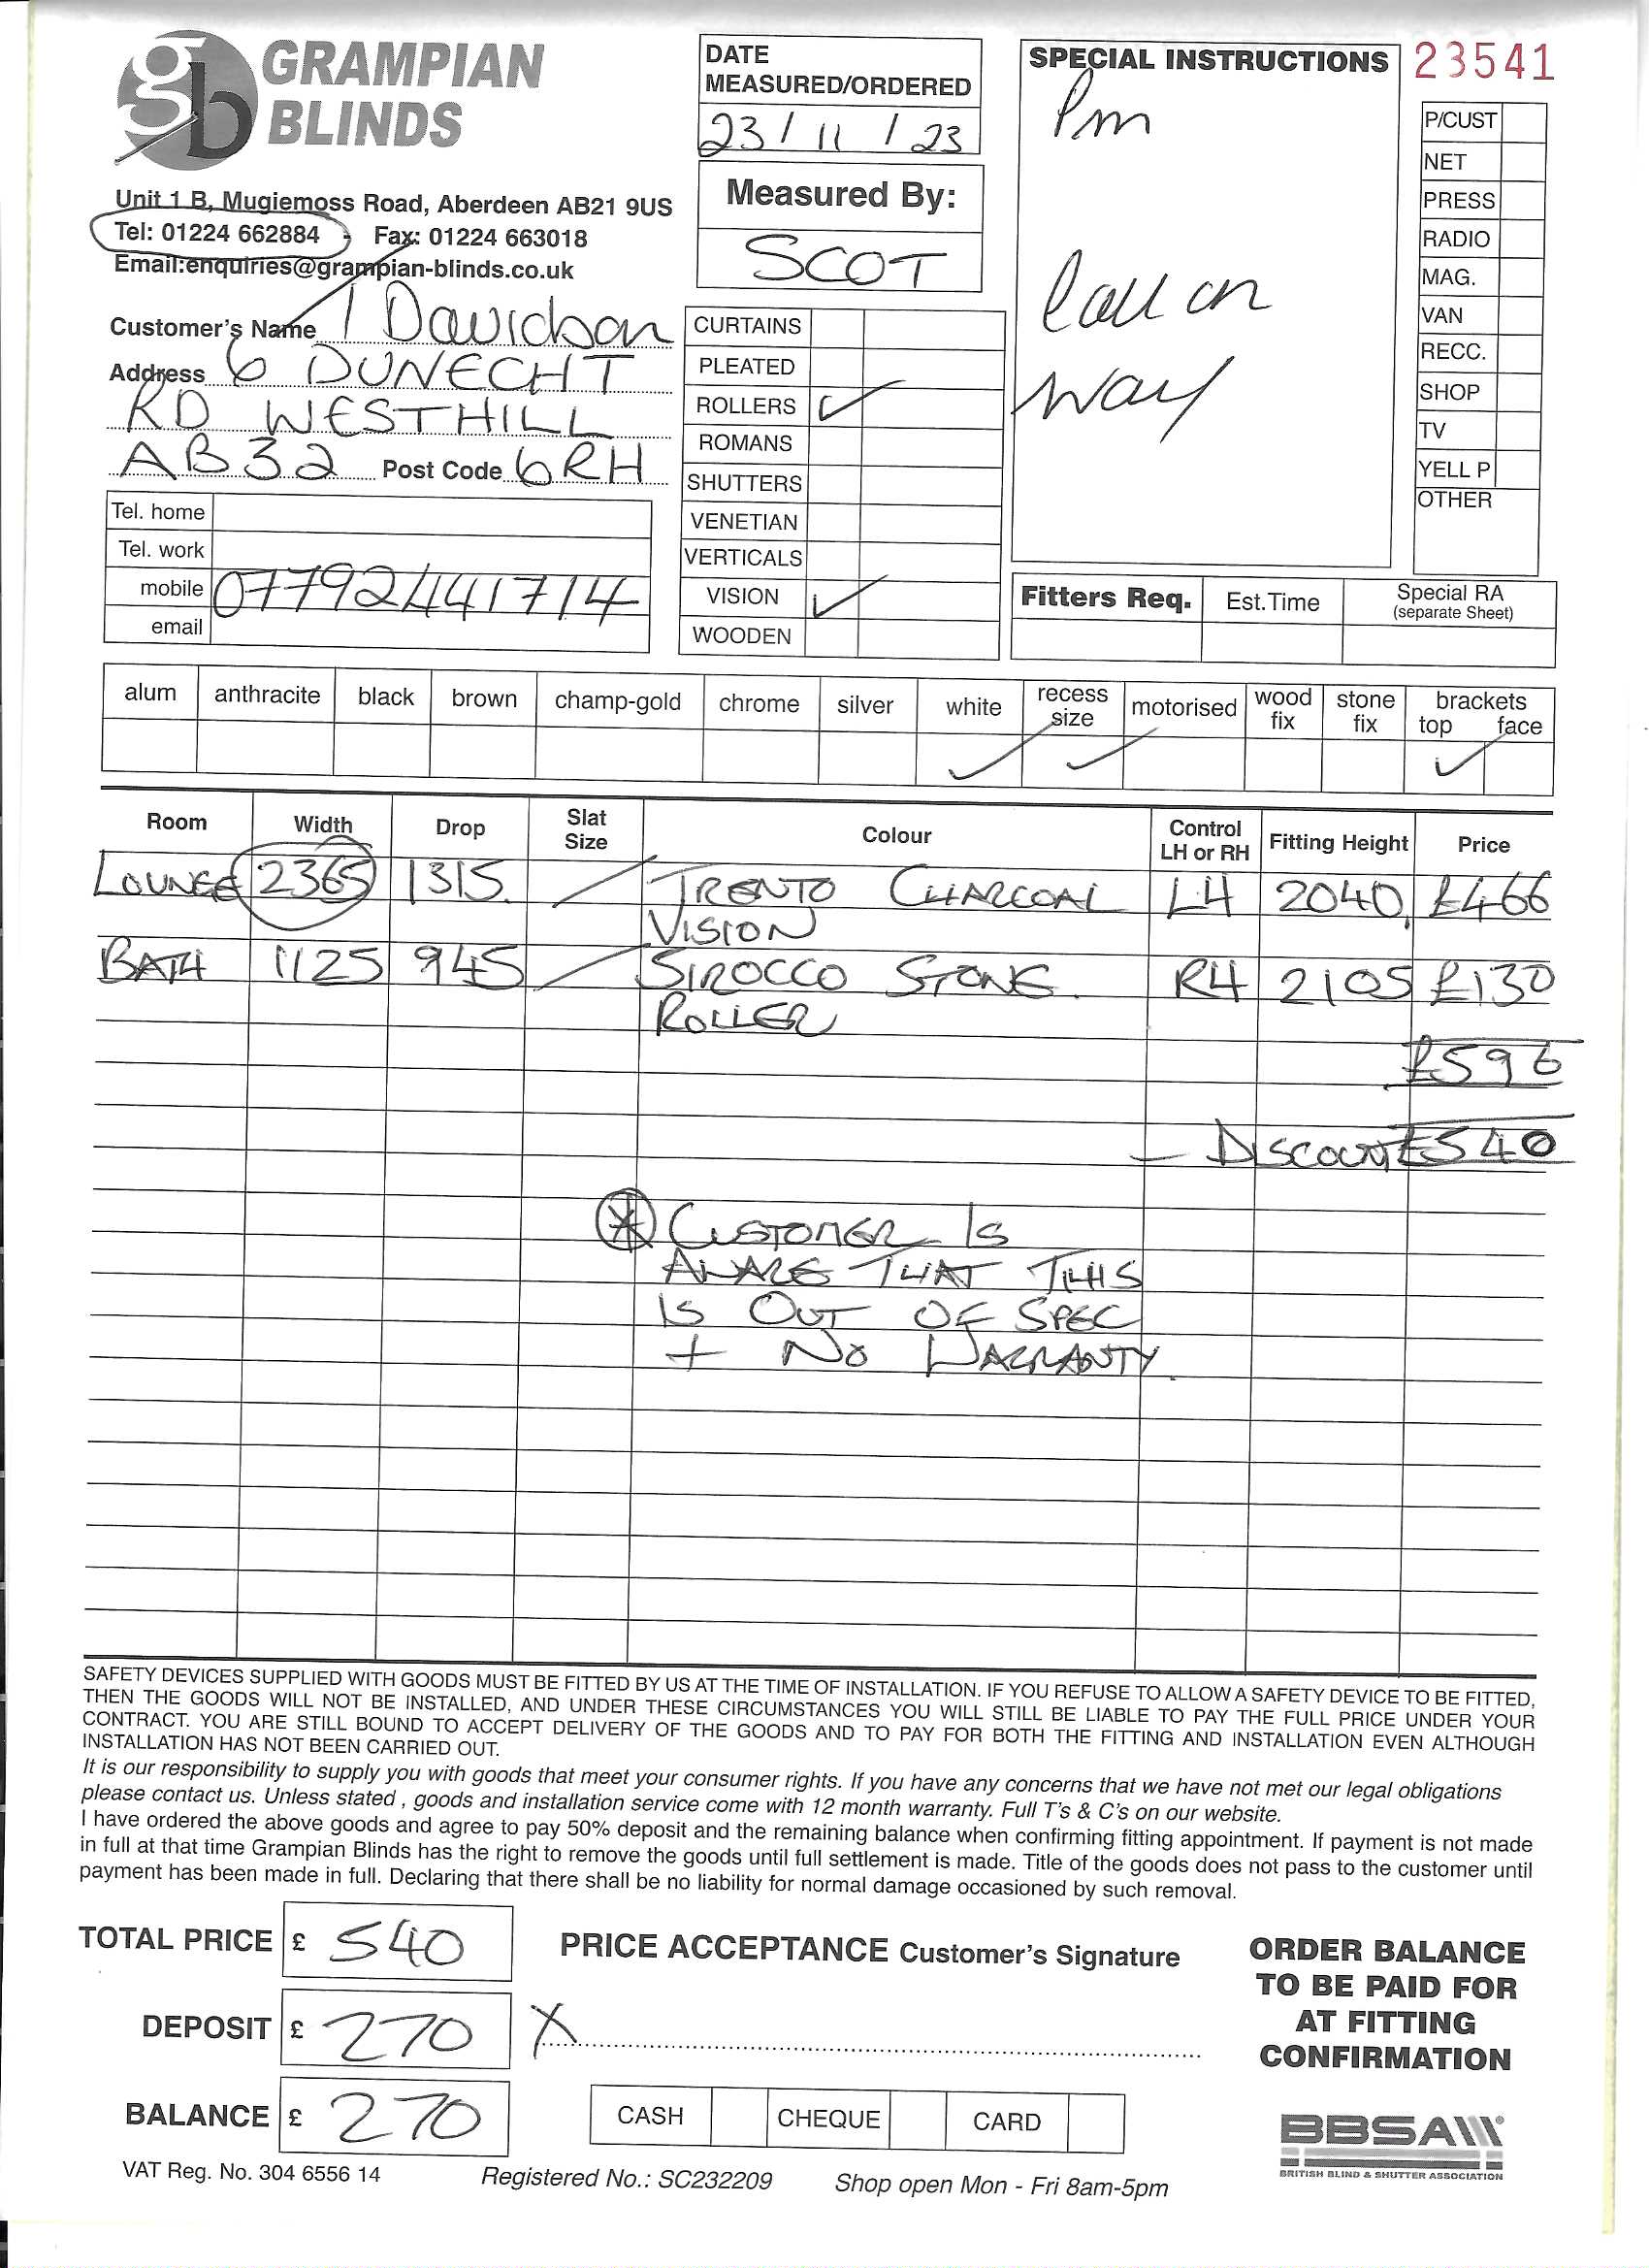 GRAMPIAN
BLINDS
Unit 1 B, Mugiemoss Road, Aberdeen AB21 9US
Tel: 01224 662884 Fax: 01224 663018
Email:enquiries@grampian-blinds.co.uk
Customer's Name Davidson
Address 6 DUNECHT
RD WESTHILL
AB32 Post Code 6RH
Tel. home
Tel. work
mobile 07792441714
email
DATE
MEASURED/ORDERED
23/11/23
Measured By:
SCOT
CURTAINS
PLEATED
ROLLERS ✓
ROMANS
SHUTTERS
VENETIAN
VERTICALS
VISION ✓
WOODEN
SPECIAL INSTRUCTIONS
Pm
Call on
way
23541
P/CUST
NET
PRESS
RADIO
MAG.
VAN
RECC.
SHOP
TV
YELL P
OTHER
Fitters Req. Est.Time Special RA
(separate Sheet)
alum anthracite black brown champ-gold chrome silver white recess size motorised wood fix stone fix brackets top face
✓ ✓ ✓
Room Width Drop Slat Size Colour Control LH or RH Fitting Height Price
LOUNGE 2365 1315 / TRENTO CHARCOAL LH 2040 £466
VISION
BATH 1125 945 / SIROCCO STONE RH 2105 £130
ROLLER
£596
- DISCOUNT £540
* CUSTOMER IS
AWARE THAT THIS
IS OUT OF SPEC
+ NO WARRANTY.
SAFETY DEVICES SUPPLIED WITH GOODS MUST BE FITTED BY US AT THE TIME OF INSTALLATION. IF YOU REFUSE TO ALLOW A SAFETY DEVICE TO BE FITTED,
THEN THE GOODS WILL NOT BE INSTALLED, AND UNDER THESE CIRCUMSTANCES YOU WILL STILL BE LIABLE TO PAY THE FULL PRICE UNDER YOUR
CONTRACT. YOU ARE STILL BOUND TO ACCEPT DELIVERY OF THE GOODS AND TO PAY FOR BOTH THE FITTING AND INSTALLATION EVEN ALTHOUGH
INSTALLATION HAS NOT BEEN CARRIED OUT.
It is our responsibility to supply you with goods that meet your consumer rights. If you have any concerns that we have not met our legal obligations
please contact us. Unless stated , goods and installation service come with 12 month warranty. Full T's & C's on our website.
I have ordered the above goods and agree to pay 50% deposit and the remaining balance when confirming fitting appointment. If payment is not made
in full at that time Grampian Blinds has the right to remove the goods until full settlement is made. Title of the goods does not pass to the customer until
payment has been made in full. Declaring that there shall be no liability for normal damage occasioned by such removal.
TOTAL PRICE £ 540
DEPOSIT £ 270
BALANCE £ 270
PRICE ACCEPTANCE Customer's Signature
X
CASH CHEQUE CARD
ORDER BALANCE
TO BE PAID FOR
AT FITTING
CONFIRMATION
BBSA
BRITISH BLIND & SHUTTER ASSOCIATION
VAT Reg. No. 304 6556 14 Registered No.: SC232209 Shop open Mon - Fri 8am-5pm